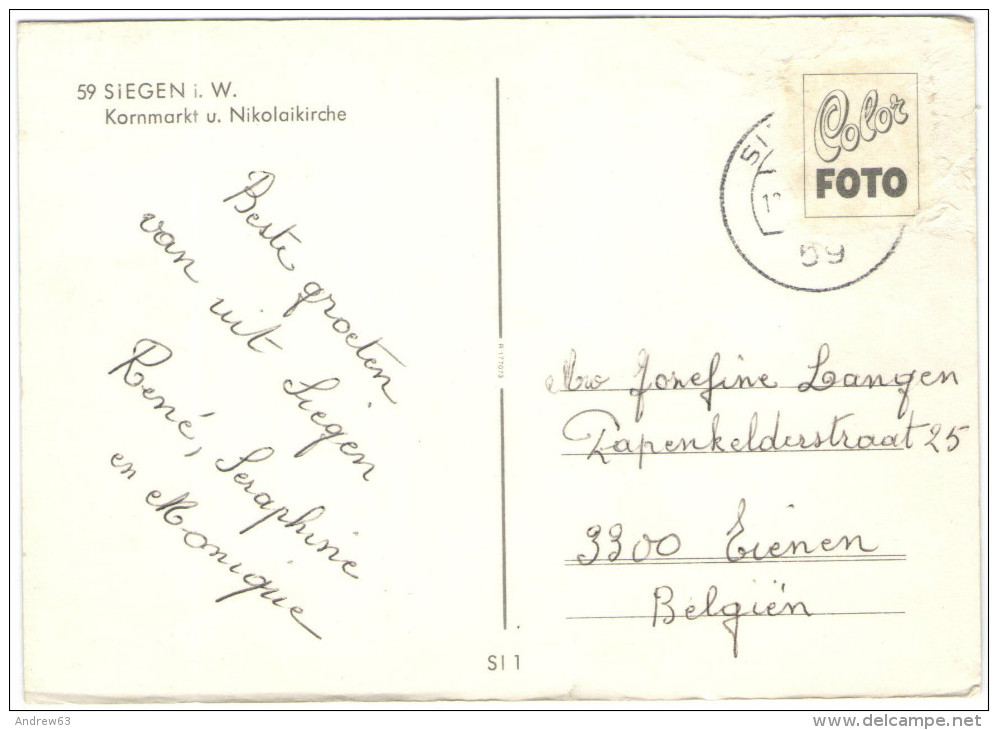 59 SiEGEN i. W.
Kornmarkt u. Nikolaikirche
Beste groeten
van uit Siegen
René, Seraphine
en Monique
Color
FOTO
59
Mw Josefine Langen
Papenkelderstraat 25
3300 Tienen
Belgiën
R 177073
SI 1
Andrew63
www.delcampe.net